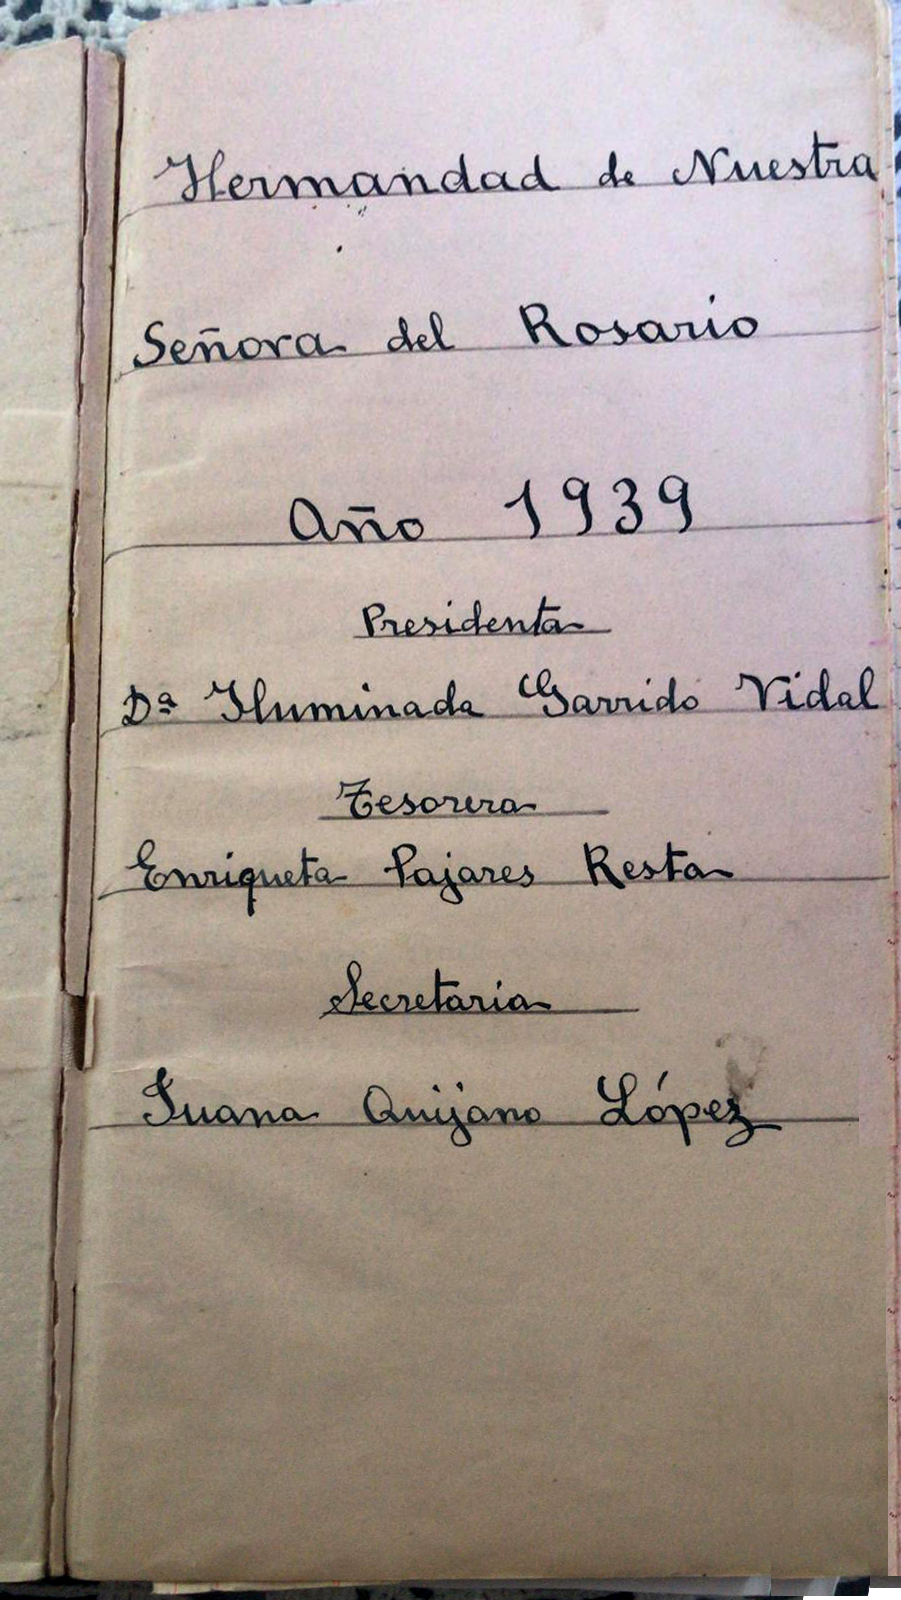 Hermandad de Nuestra
Señora del Rosario
Año 1939
Presidenta
Dª Iluminada Garrido Vidal
Tesorera
Enriqueta Pajares Resta
Secretaria
Juana Quijano López